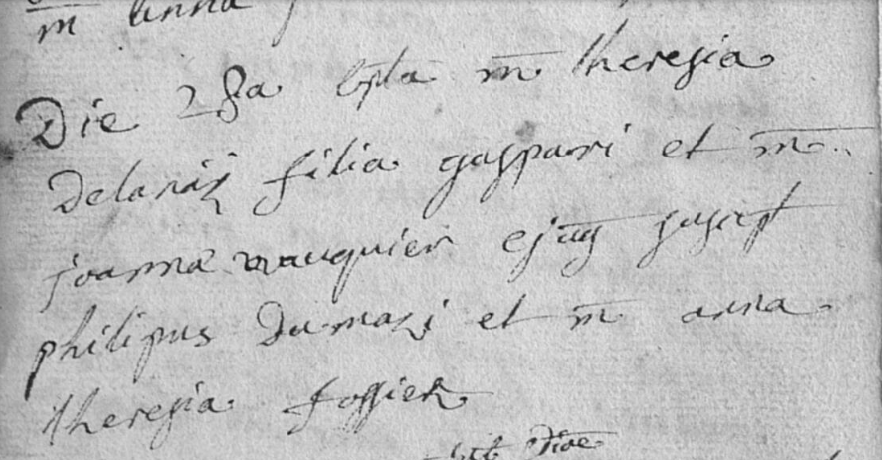 m anna
Die 28a bpta m theresia
Delanis filia gaspari et m
joanna mauquier ejus suscept
philipus Damasi et m anna
theresia fossier